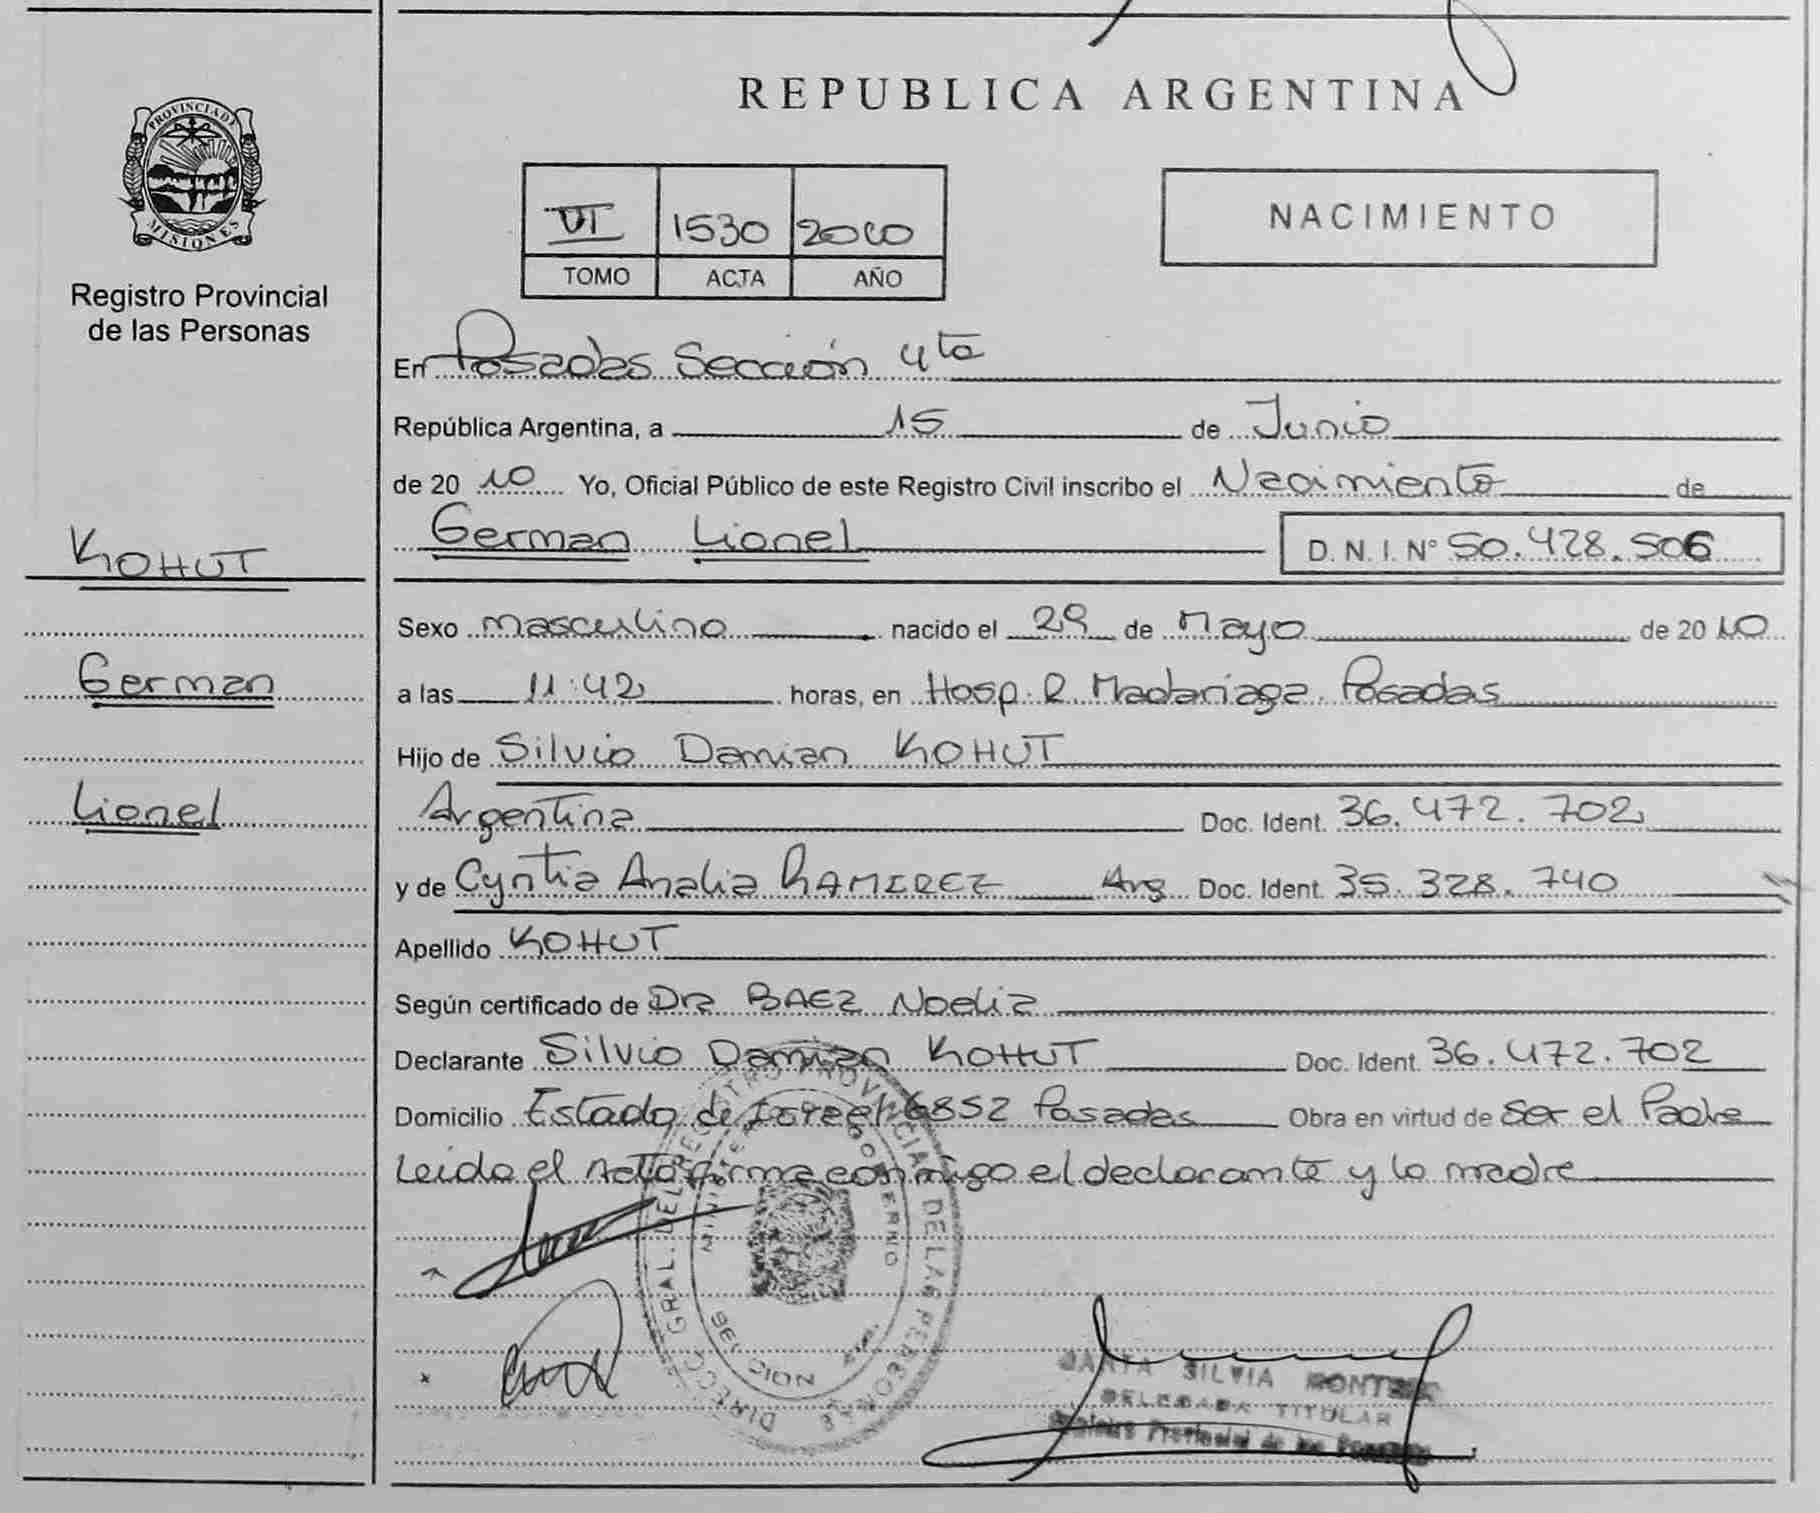 REPUBLICA ARGENTINA
PROVINCIA DE
MISIONES
Registro Provincial
de las Personas
VI 1530 2010
TOMO ACTA AÑO
NACIMIENTO
En Posadas Sección 4ta
República Argentina, a 15 de Junio
de 20 10 Yo, Oficial Público de este Registro Civil inscribo el Nacimiento de
German Lionel D. N. I. N° 50.428.506
KOHUT
German
Lionel
Sexo masculino nacido el 29 de Mayo de 20 10
a las 11:42 horas, en Hosp. R. Madariaga. Posadas
Hijo de Silvio Damian KOHUT
Argentina Doc. Ident. 36.472.702
y de Cyntia Analia RAMIREZ Arg Doc. Ident. 35.328.740
Apellido KOHUT
Según certificado de Dra BAEZ Noelia
Declarante Silvio Damian KOHUT Doc. Ident. 36.472.702
Domicilio Estado de Israel 6852 Posadas Obra en virtud de Ser el Padre
Leida el Acta firma conmigo el declarante y la madre
DIRECC. GRAL. DEL REGISTRO PROVINCIAL DE LAS PERSONAS
GOBIERNO
SILVIA
DELEGADA TITULAR
Provincial de las Personas